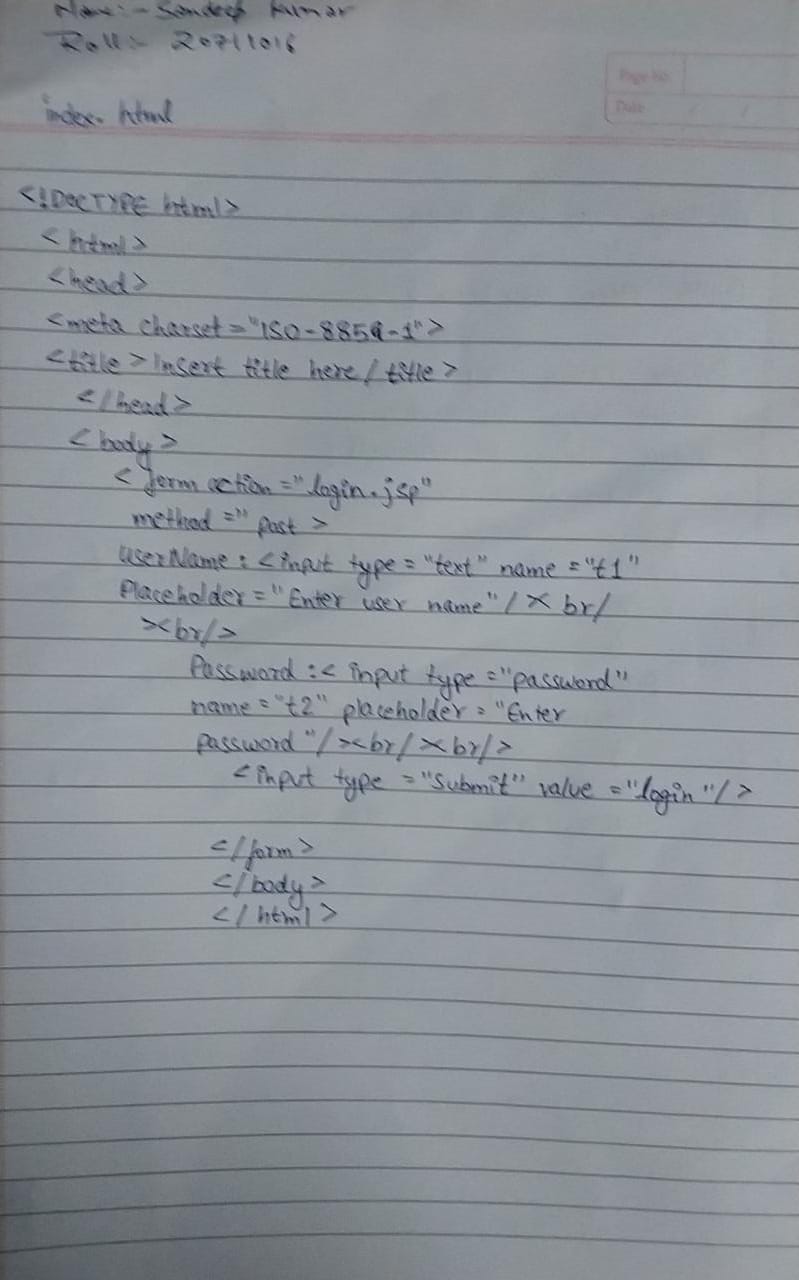 Name:- Sandeep Kumar
Roll:- 20711016
Page No
Date / /
index. html
<!DOCTYPE html>
<html>
<head>
<meta charset="ISO-8859-1">
<title>Insert title here/title>
</head>
<body>
<form action="login.jsp"
method="post>
userName: <input type="text" name="t1"
Placeholder="Enter user name"/>< br/
><br/>
Password:< input type="password"
name="t2" placeholder="Enter
password"/><br/><br/>
<input type="Submit" value="login"/>
</form>
</body>
</html>